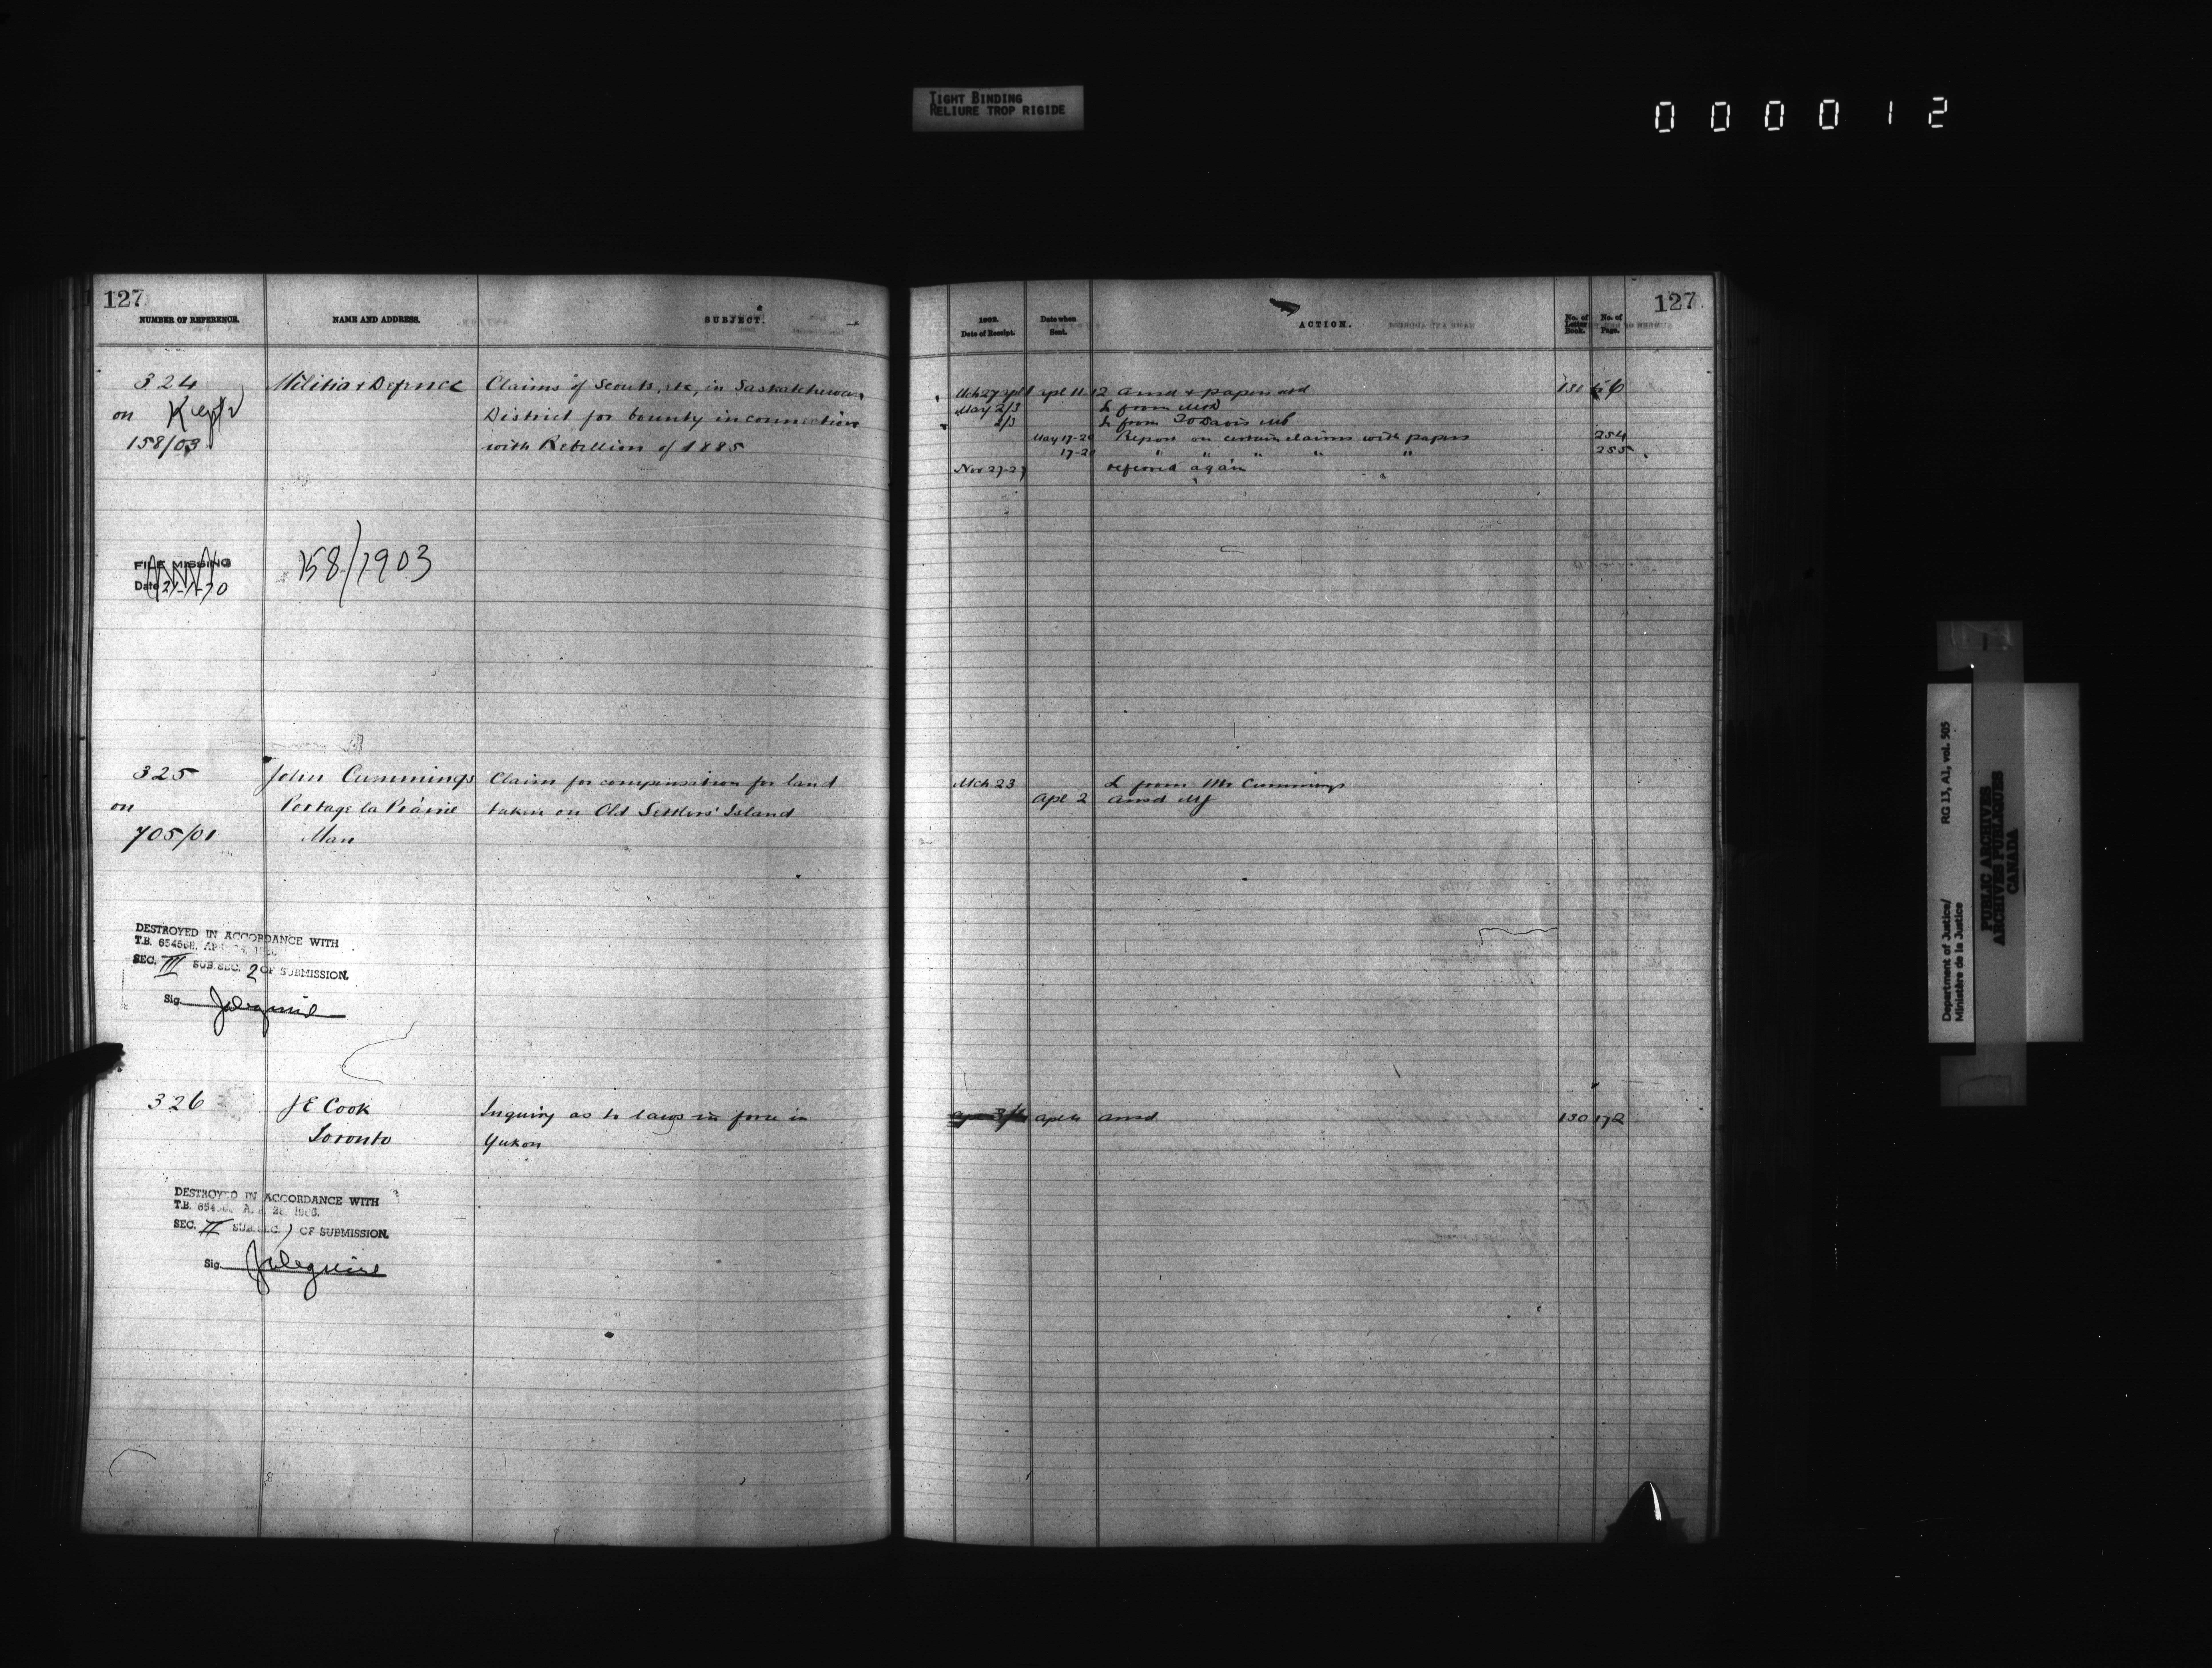 TIGHT BINDING
RELIURE TROP RIGIDE
000012
127
NUMBER OF REFERENCE. NAME AND ADDRESS. SUBJECT.
324 Militia & Defence Claims of Scouts, etc, in Saskatchewan
on Kept District for bounty in connection
158/03 with Rebellion of 1885
FILE MISSING
Date
158/1903
325 John Cummings Claim for compensation for land
on Portage la Prairie taken on Old Settlers' Island
705/01 Man
DESTROYED IN ACCORDANCE WITH
T.B. APR 1966
SEC. III SUB SEC. 2 OF SUBMISSION.
Sig.
326 J E Cook Inquiry as to laws in force in
Toronto Yukon
DESTROYED IN ACCORDANCE WITH
T.B. APR 28 1966.
SEC. II SUB SEC. 1 OF SUBMISSION.
Sig.
127
1902.
Date of Receipt. Date when Sent. ACTION. No. of Letter Book. No. of Page.
Mch 27 Apl 1 Apl 11 12 Ansd & papers retd 131
May 2/3 L from M&D
2/3 L from Davis MP
May 17-20 Report on certain claims with papers 254
17-20 " " " " " 255
Nov 27-27 referred again
Mch 23 L from Mr Cummings
Apl 2 Ansd MJ
Apl 4 Ansd 130 172
Department of Justice/
Ministère de la Justice
RG 13, A1, vol. 505
PUBLIC ARCHIVES
ARCHIVES PUBLIQUES
CANADA